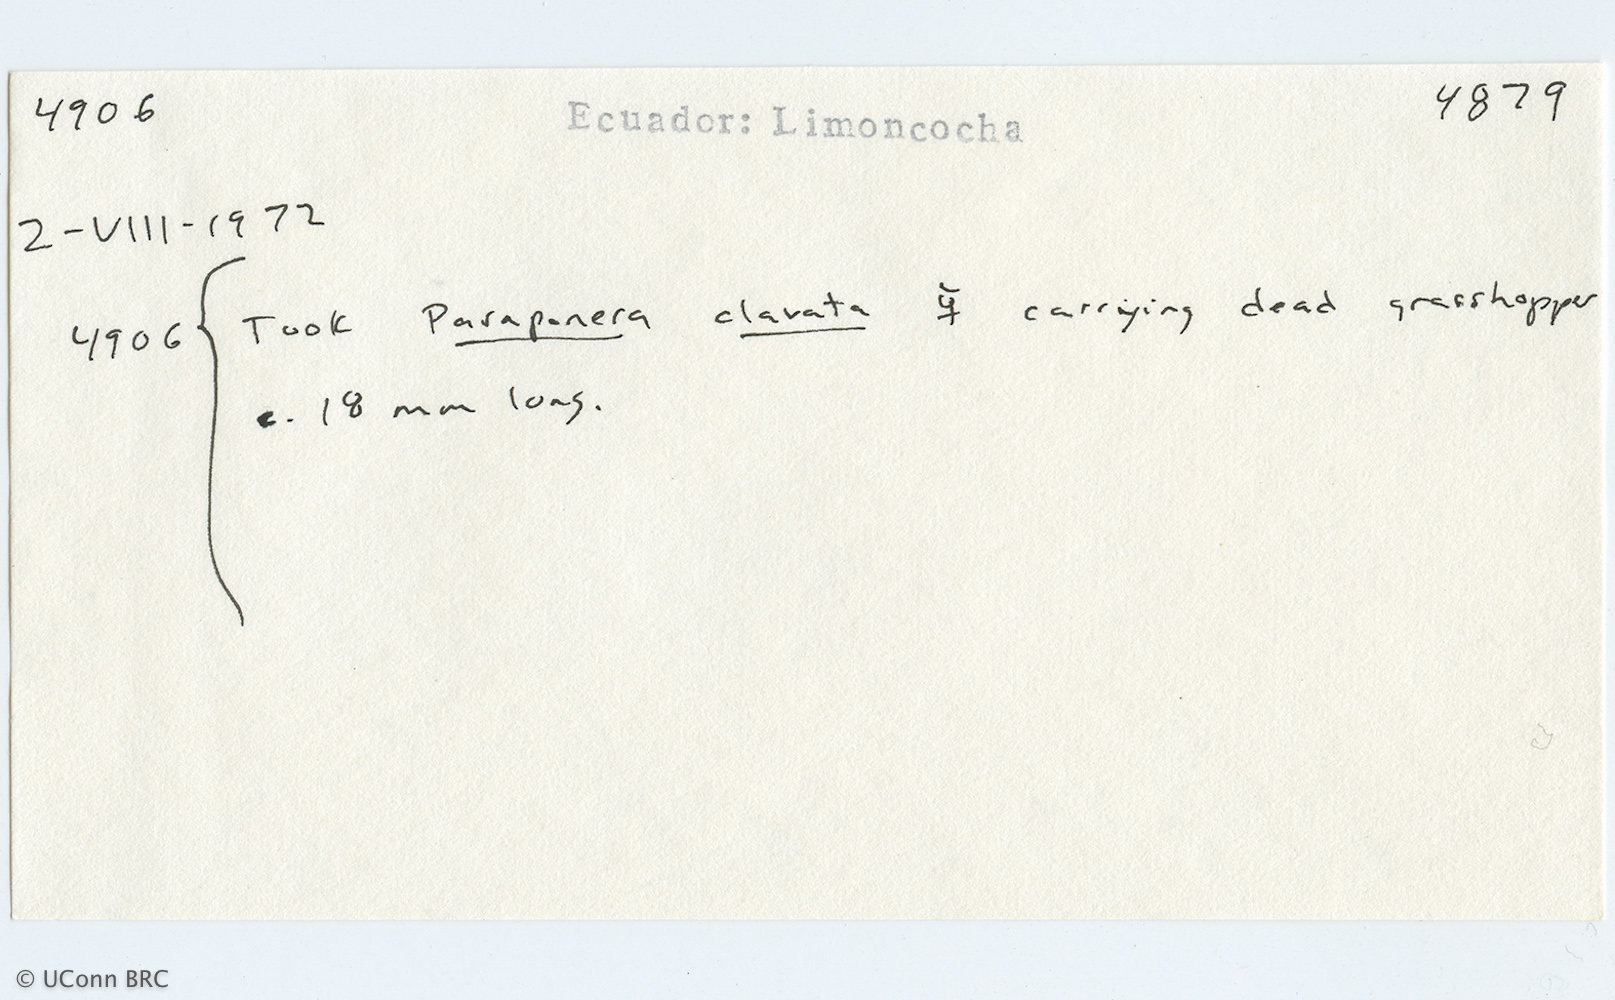 4906 Ecuador: Limoncocha 4879
2-VIII-1972
4906 { Took Paraponera clavata ☿ carrying dead grasshopper
c. 18 mm long.
© UConn BRC